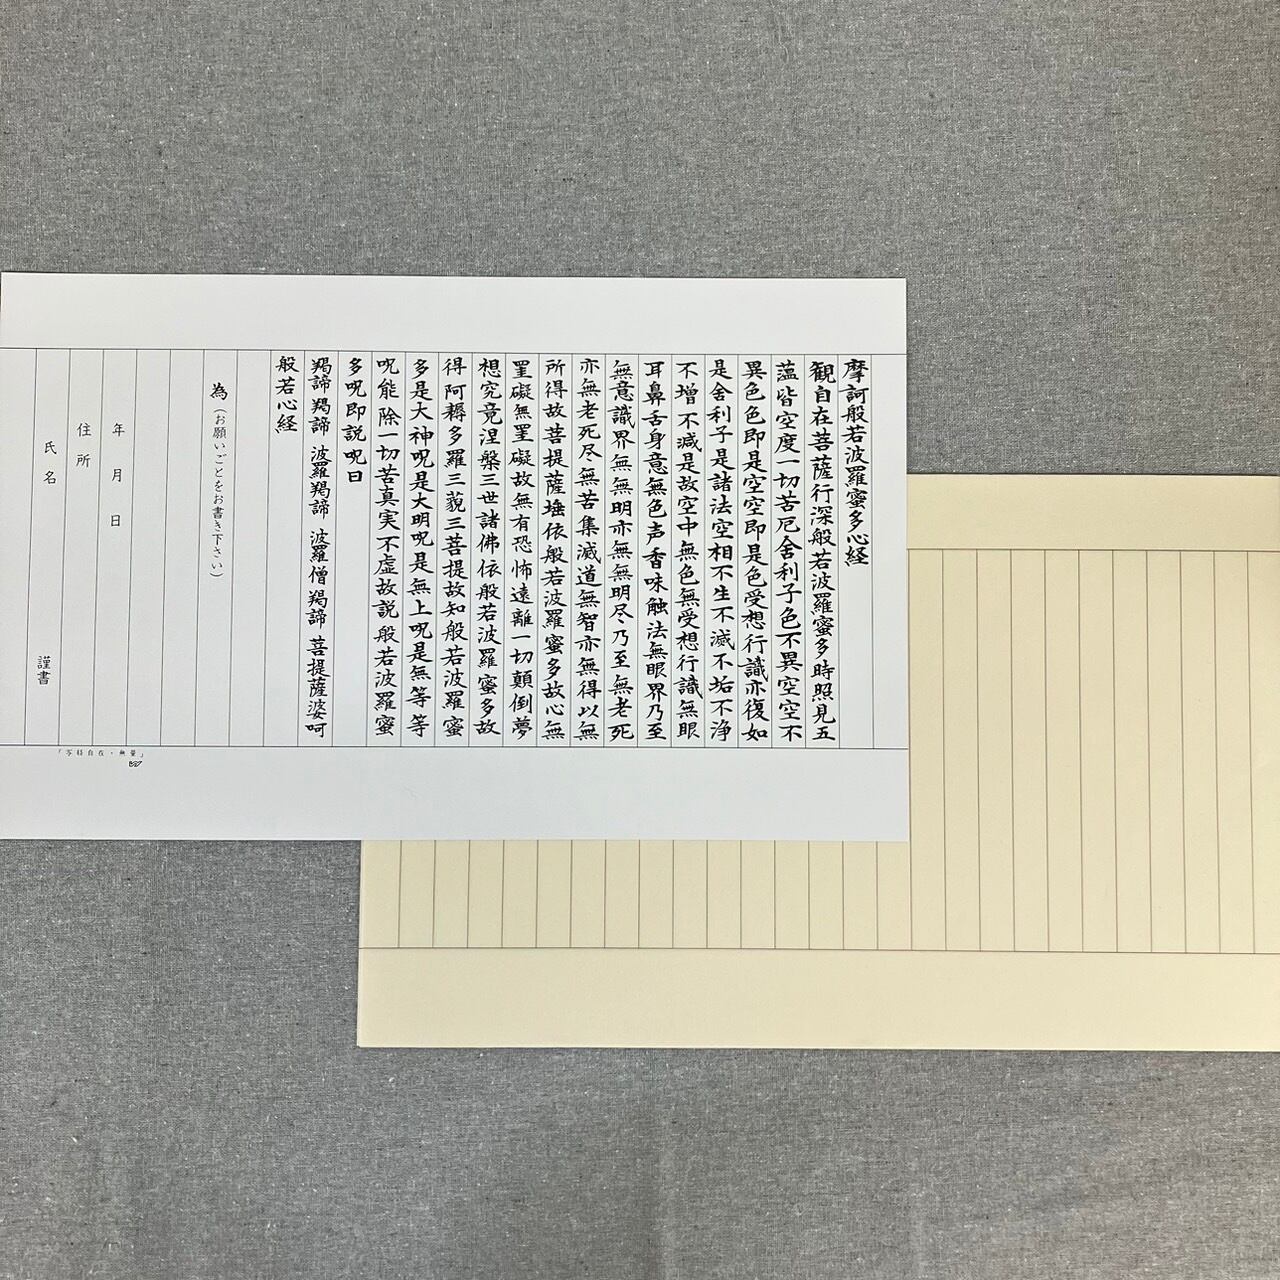 摩訶般若波羅蜜多心経
観自在菩薩行深般若波羅蜜多時照見五
薀皆空度一切苦厄舍利子色不異空空不
異色色即是空空即是色受想行識亦復如
是舍利子是諸法空相不生不滅不垢不浄
不増不減是故空中無色無受想行識無眼
耳鼻舌身意無色声香味触法無眼界乃至
無意識界無無明亦無無明尽乃至無老死
亦無老死尽無苦集滅道無智亦無得以無
所得故菩提薩埵依般若波羅蜜多故心無
罣礙無罣礙故無有恐怖遠離一切顛倒夢
想究竟涅槃三世諸佛依般若波羅蜜多故
得阿耨多羅三藐三菩提故知般若波羅蜜
多是大神呪是大明呪是無上呪是無等等
呪能除一切苦真実不虚故説般若波羅蜜
多呪即説呪曰
羯諦 羯諦 波羅羯諦 波羅僧羯諦 菩提薩婆呵
般若心経
為(お願いごとをお書き下さい)
年 月 日
住所
氏名 謹書
「写経自在・無量」